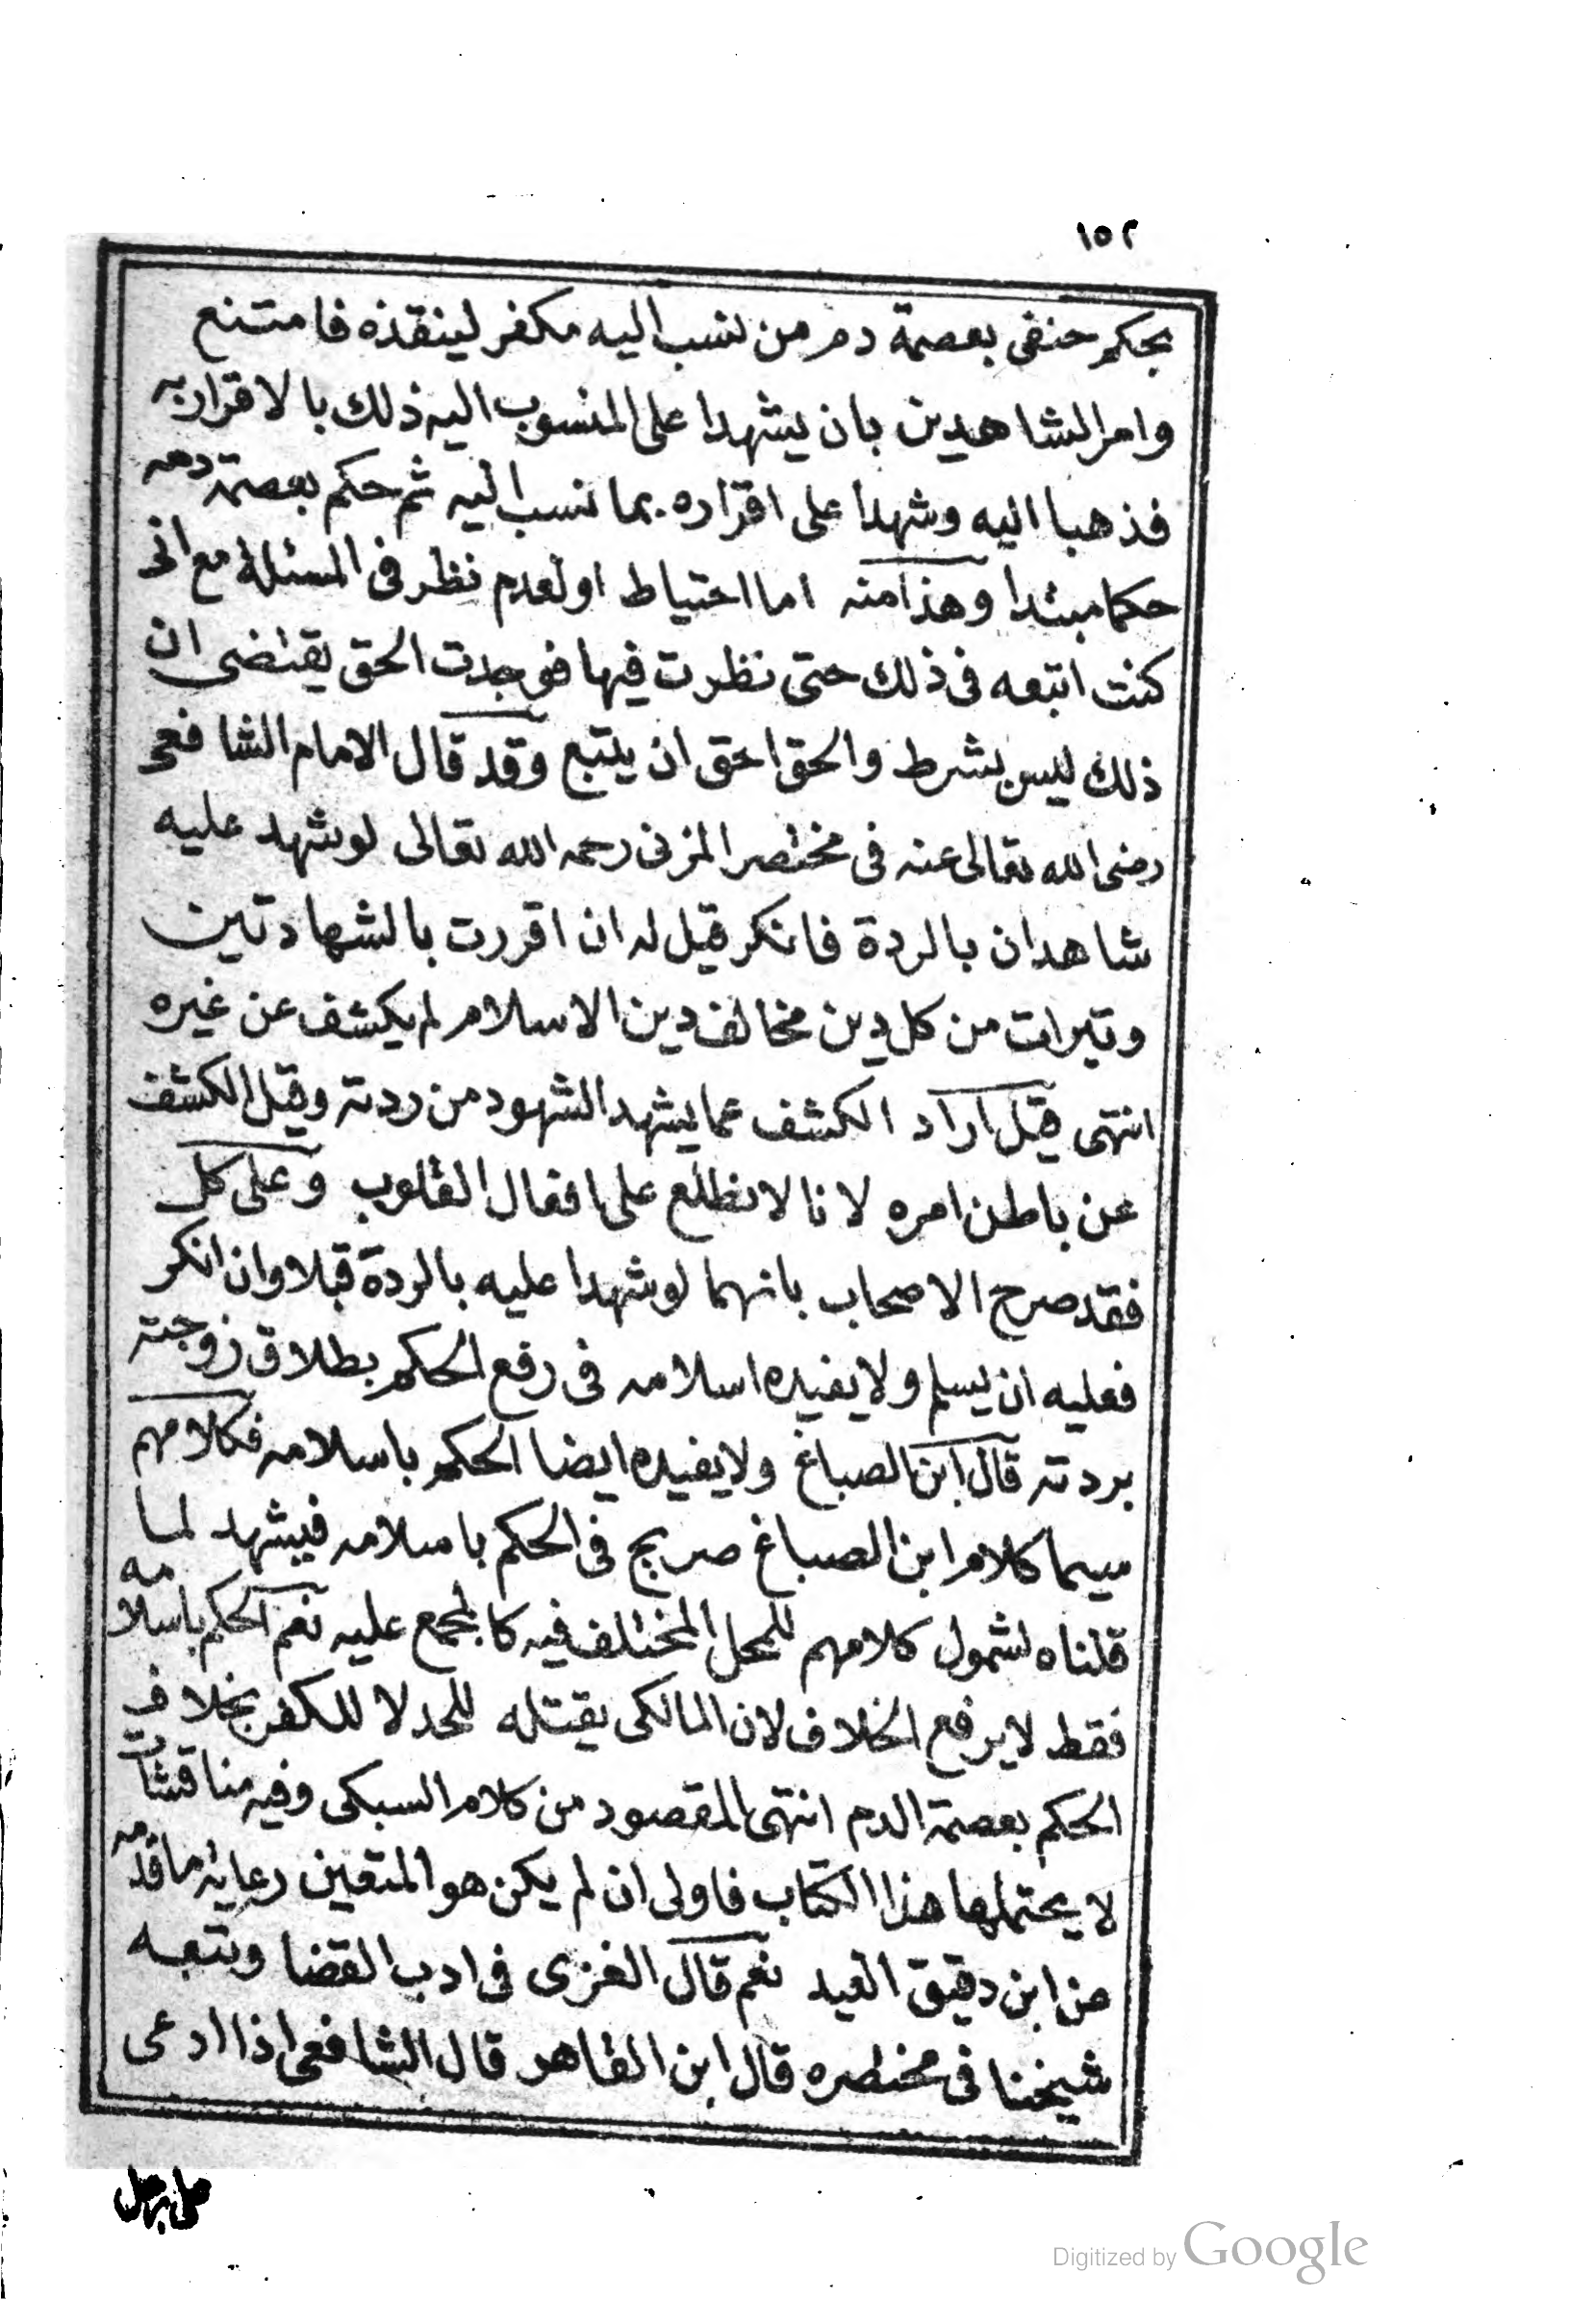 ١٥٢
بحكم حنفى بعصمة دم من نسب اليه مكفر لينقذه فامتنع
وامر الشاهدين بان يشهدا على المنسوب اليه ذلك بالاقرار به
فذهبا اليه وشهدا على اقراره بما نسب اليه ثم حكم بعصمة دمه
حكما مبتدا وهذا منه اما احتياط او لعدم نظر فى المسئلة مع انى
كنت اتبعه فى ذلك حتى نظرت فيها فوجدت الحق يقتضى ان
ذلك ليس بشرط والحق احق ان يتبع وقد قال الامام الشافعى
رضى الله تعالى عنه فى مختصر المزنى رحمه الله تعالى لو شهد عليه
شاهدان بالردة فانكر قيل له ان اقررت بالشهادتين
وتبرات من كل دين مخالف دين الاسلام لم يكشف عن غيره
انتهى قيل اراد الكشف عما يشهد الشهود من ردته وقيل الكشف
عن باطن امره لانا لا نطلع على افعال القلوب وعلى كل
فقد صرح الاصحاب بانهما لو شهدا عليه بالردة قبلا وان انكر
فعليه ان يسلم ولا يفيده اسلامه فى رفع الحكم بطلاق زوجته
بردته قال ابن الصباغ ولا يفيده ايضا الحكم باسلامه فكلامهم
سيما كلام ابن الصباغ صريح فى الحكم باسلامه فيشهد لما
قلناه لشمول كلامهم للمحل المختلف فيه كالمجمع عليه نعم الحكم باسلامه
فقط لا يرفع الخلاف لان المالكى يقتله للحد لا للكفر بخلاف
الحكم بعصمة الدم انتهى المقصود من كلام السبكى وفيه مناقشات
لا يحتملها هذا الكتاب فاولى ان لم يكن هو المتعين رعاية ما قدمه
عن ابن دقيق العيد نعم قال الغزى فى ادب القضا وتبعه
شيخنا فى مختصره قال ابن القاهر قال الشافعى اذا ادعى
على رجل
Digitized by Google